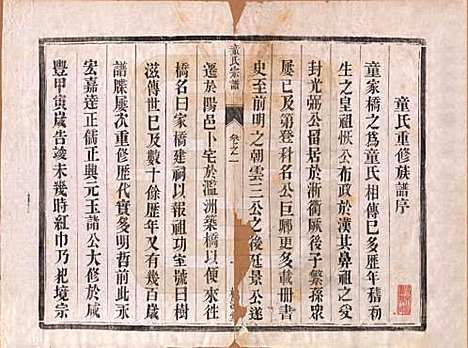 童氏重修族譜序
童家橋之爲童氏相傳巳多歷年稽初
生之皇祖恢公布政於漢其鼻祖
封光弼公留居於淅衢厥後子繁孫眾
屢巳及第登科名公巨卿更多載册書
史至前明之朝雲三公之後廷景公遂
童氏宗譜
卷之一
遷於陽邑卜宅於濫洲築橋以便來
橋名曰家橋建祠以報祖功室號曰樹
滋傳世巳及數十餘歷年又有幾百歲
譜牒屢次重修歷代實多明哲此前永
宏嘉達正興元玉諸公大修於咸
豐甲寅歲告竣未幾時紅巾乃祀境宗